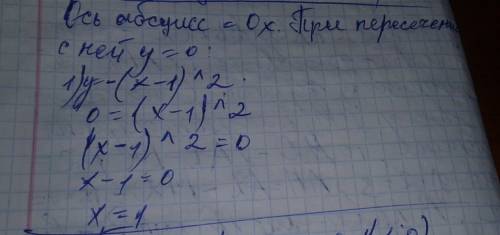 Ось абсцисс = Ox. При пересечени
с ней y = 0
1) y = -(x-1)^2
0 = (x-1)^2
(x-1)^2 = 0
x-1=0
x=1